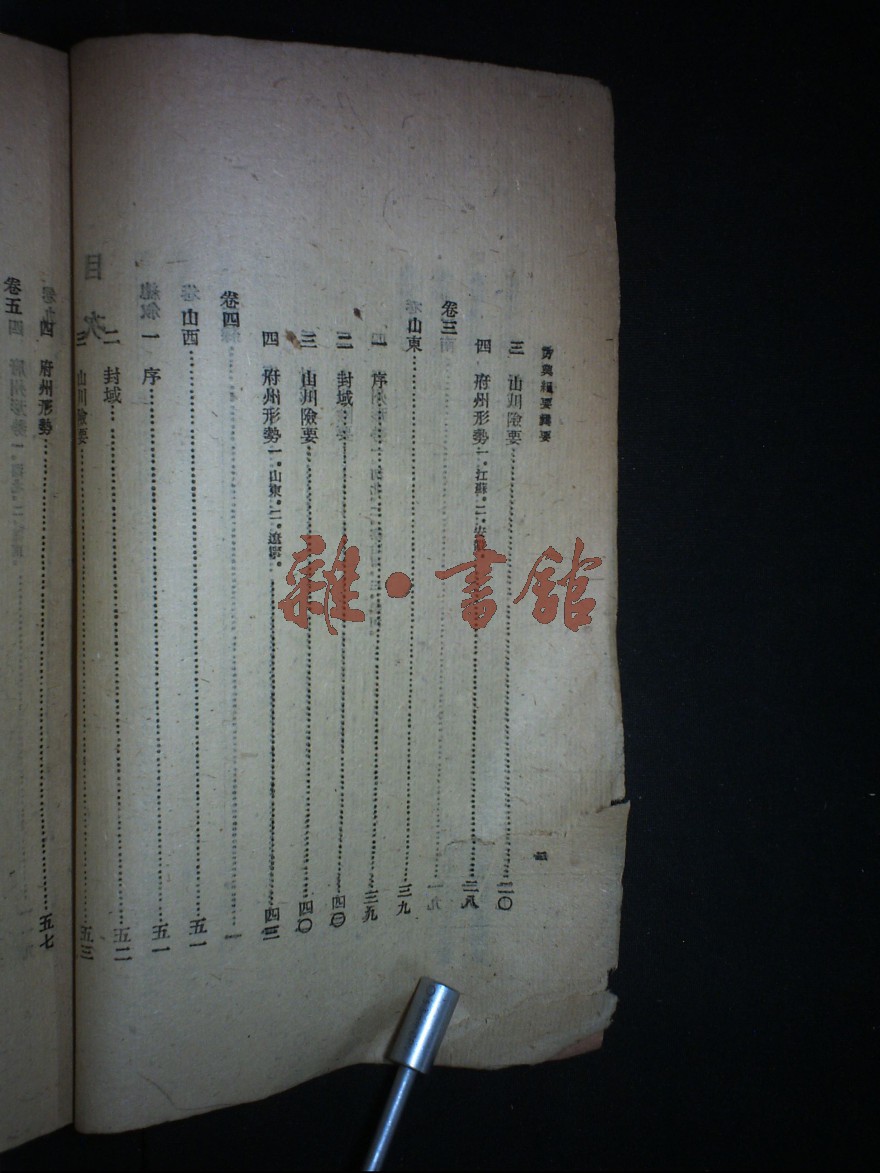 方輿紀要輯要
二
三 山川險要 二〇
四 府州形勢 一.江蘇.二.安徽. 二八
卷三
山東 三九
一 序 三九
二 封域 四〇
三 山川險要 四〇
四 府州形勢 一.山東.二.遼寧. 四三
卷四
山西 五一
一 序 五一
二 封域 五二
三 山川險要 五三
四 府州形勢 五七
卷五
雜·書館